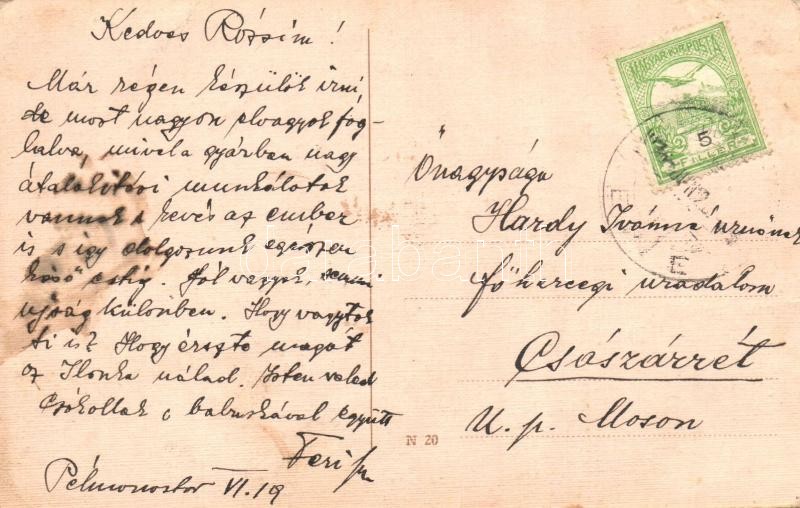 Kedves Rózsim!
Már régen készülök irni,
de most nagyon elvagyok fog-
lalva, mivel a gyárban nagy
átalakitási munkálatok
vannak s kevés az ember
is s igy dolgozunk egészen
késő estig. Jól vagyok, semmi
ujság különben. Hogy vagytok
ti is? Hogy érezte magát
az Ilonka nálad. Isten veled
Csókollak a babuskával együtt
Feri
Pélmonostor VI. 19
MAGYAR KIR. POSTA
5
FILLÉR
Őnagysága
Hardy Ivánné úrnőnek
főhercegi uradalom
Császárrét
U. p. Moson
N 20